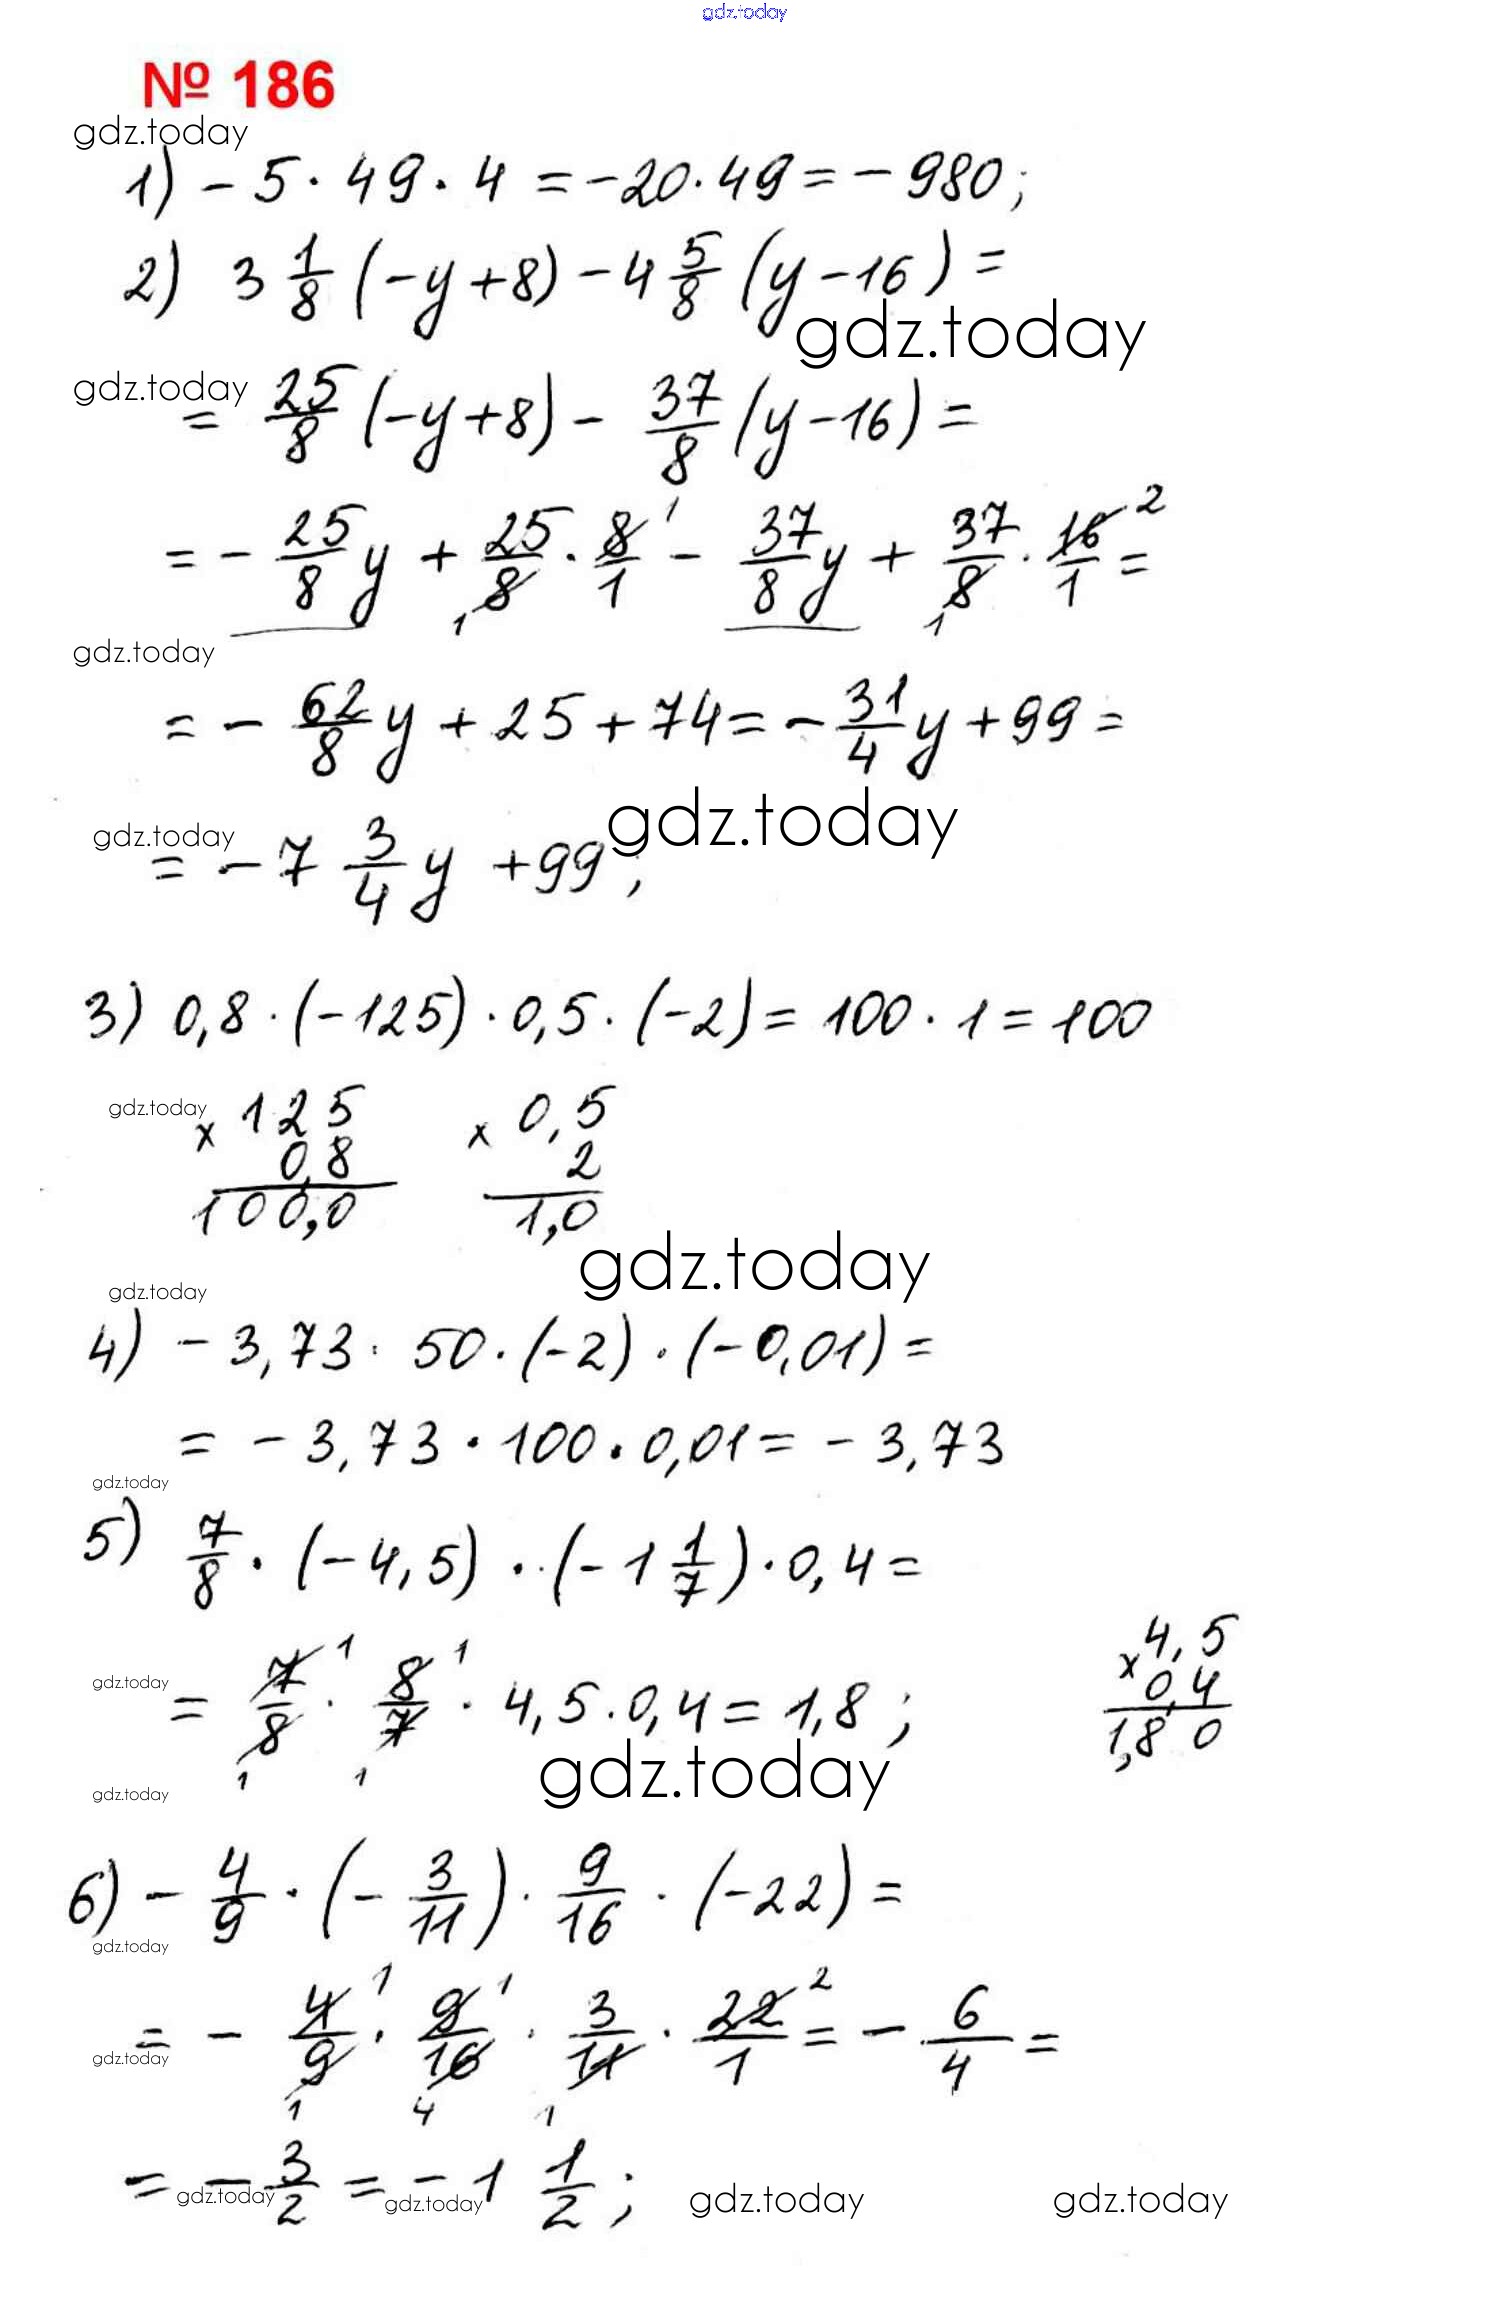 gdz.today
№ 186
gdz.today
1) - 5 · 49 · 4 = -20 · 49 = - 980;
2) 3 1/8 (-y + 8) - 4 5/8 (y - 16) =
gdz.today
gdz.today
= 25/8 (-y + 8) - 37/8 (y - 16) =
= - 25/8 y + 25/8 · 8/1 - 37/8 y + 37/8 · 16/1 =
1 2
1 1
gdz.today
= - 62/8 y + 25 + 74 = - 31/4 y + 99 =
gdz.today
gdz.today
= - 7 3/4 y + 99;
3) 0,8 · (-125) · 0,5 · (-2) = 100 · 1 = 100
gdz.today
x 125 x 0,5
0,8 2
100,0 1,0
gdz.today
gdz.today
4) - 3,73 · 50 · (-2) · (-0,01) =
= - 3,73 · 100 · 0,01 = - 3,73
gdz.today
5) 7/8 · (-4,5) · (-1 1/7) · 0,4 =
gdz.today
= 7/8 · 8/7 · 4,5 · 0,4 = 1,8;
1 1
1 1
x 4,5
0,4
1,80
gdz.today
gdz.today
6) - 4/9 · (- 3/11) · 9/16 · (-22) =
gdz.today
= - 4/9 · 9/16 · 3/11 · 22/1 = - 6/4 =
1 1 2
1 4 1
gdz.today
= - 3/2 = - 1 1/2;
gdz.today gdz.today gdz.today gdz.today